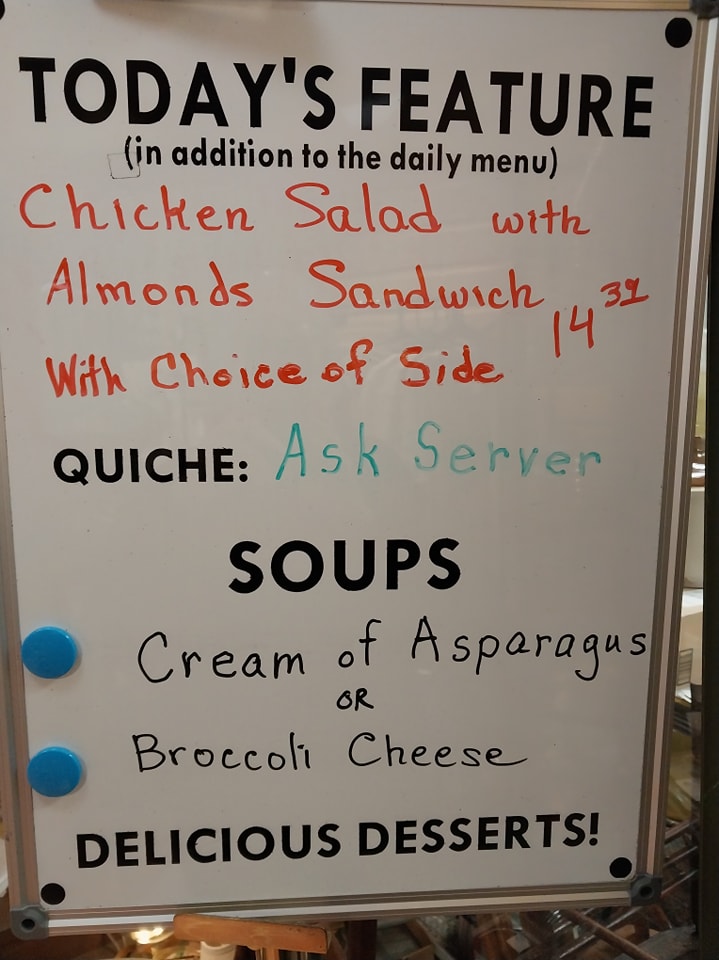 TODAY'S FEATURE
(in addition to the daily menu)
Chicken Salad with
Almonds Sandwich 14 39
With Choice of Side
QUICHE: Ask Server
SOUPS
Cream of Asparagus
OR
Broccoli Cheese
DELICIOUS DESSERTS!